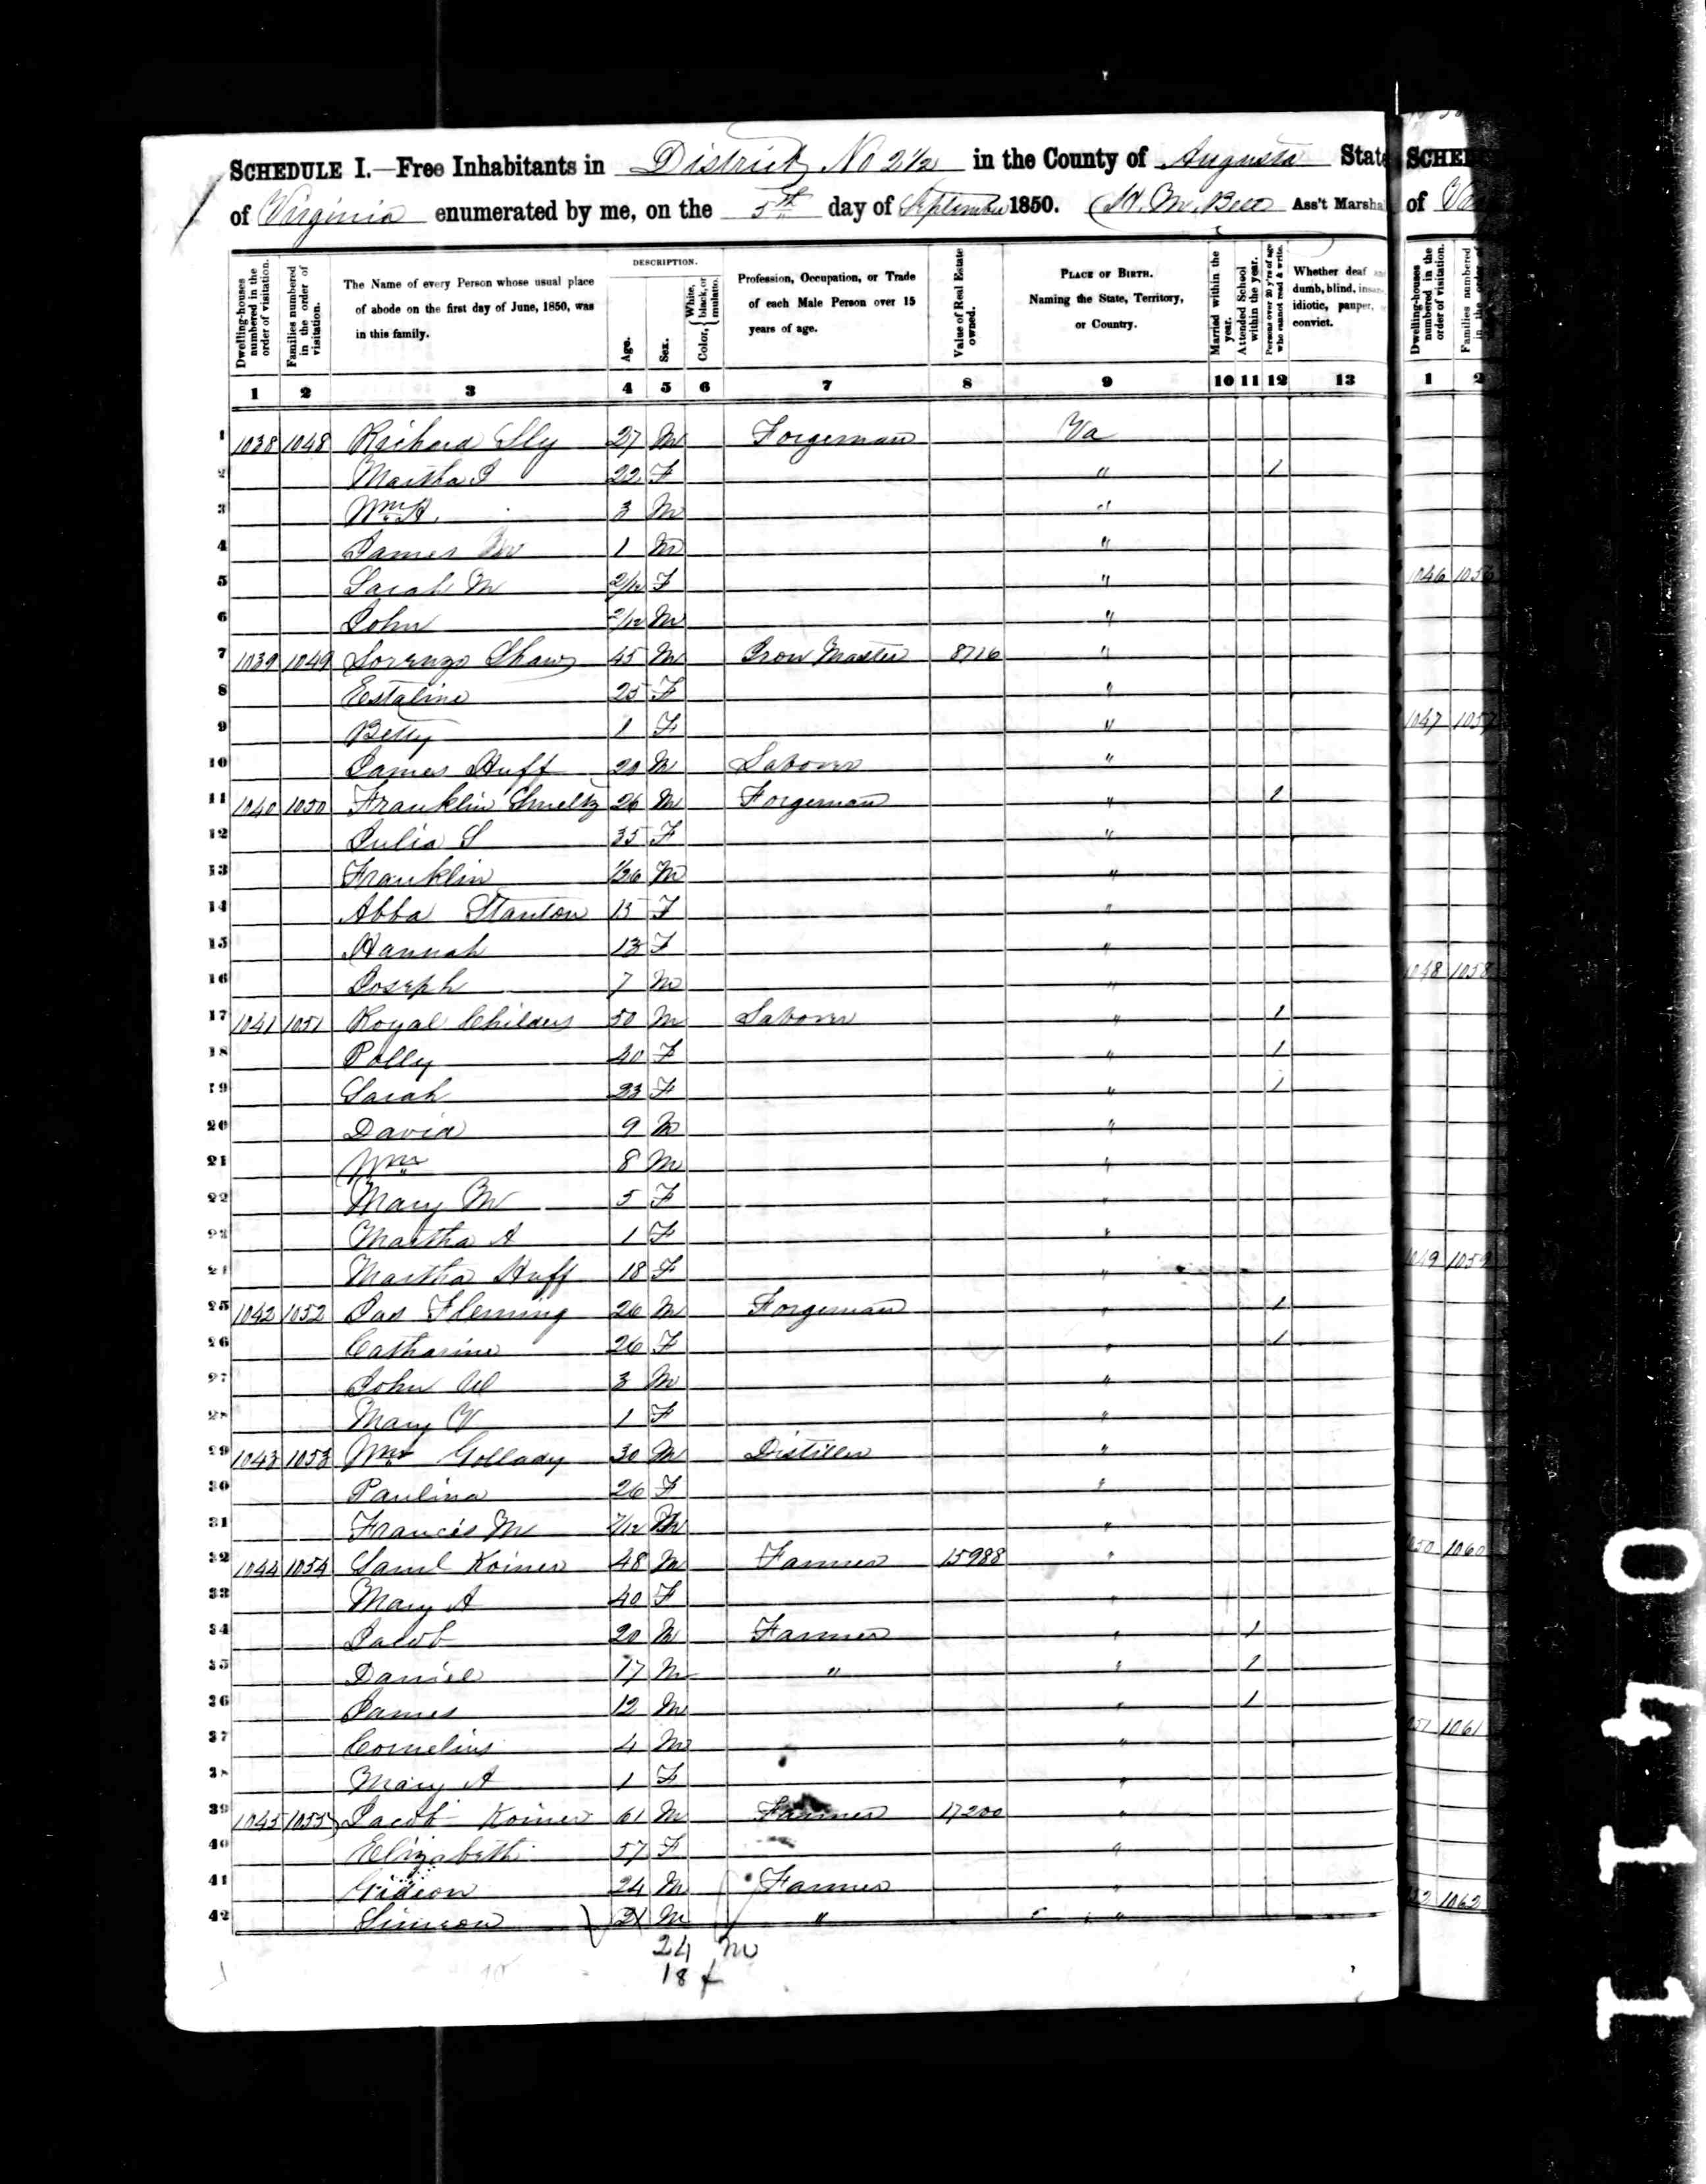 SCHEDULE I.—Free Inhabitants in District No 2½ in the County of Augusta State
of Virginia enumerated by me, on the 5th day of September 1850. Ass't Marsha
DESCRIPTION.
Dwelling-houses numbered in the order of visitation.
Families numbered in the order of visitation.
The Name of every Person whose usual place of abode on the first day of June, 1850, was in this family.
Age.
Sex.
Color, { White, black, or mulatto.
Profession, Occupation, or Trade of each Male Person over 15 years of age.
Value of Real Estate owned.
PLACE OF BIRTH. Naming the State, Territory, or Country.
Married within the year.
Attended School within the year.
Persons over 20 y'rs of age who cannot read & write.
Whether deaf and dumb, blind, insane, idiotic, pauper, or convict.
1 2 3 4 5 6 7 8 9 10 11 12 13
1 1038 1048 Richard Sly 27 M Forgeman Va
2 Martha J 22 F " 1
3 Wm H. 3 M "
4 James M 1 M "
5 Sarah M 2/12 F "
6 John 2/12 M "
7 1039 1049 Lorenzo Shaw 45 M Iron Master 8716 "
8 Estaline 25 F "
9 Betty 1 F "
10 James Huff 20 M Laborer "
11 1040 1050 Franklin Smeltz 26 M Forgeman " 1
12 Julia S 35 F "
13 Franklin M "
14 Abba Stanton 15 F "
15 Hannah 13 F "
16 Joseph 7 M "
17 1041 1051 Royal Childers 50 M Laborer " 1
18 Polly 40 F " 1
19 Sarah 23 F " 1
20 David 9 M "
21 Wm 8 M "
22 Mary M 5 F "
23 Martha A 1 F "
24 Martha Huff 18 F "
25 1042 1052 Jas Fleming 26 M Forgeman " 1
26 Catharine 26 F " 1
27 John W 3 M "
28 Mary V 1 F "
29 1043 1053 Wm Gollady 30 M Distiller "
30 Paulina 26 F "
31 Francis M 7/12 M "
32 1044 1054 Saml Koiner 48 M Farmer 15988 "
33 Mary A 40 F "
34 Jacob 20 M Farmer " 1
35 Daniel 17 M " " 1
36 James 12 M " 1
37 Cornelius 4 M "
38 Mary A 1 F "
39 1045 1055 Jacob Koiner 61 M Farmer 17200 "
40 Elizabeth 57 F "
41 Gideon 24 M Farmer "
42 Simeon 21 M " "
24 M
18 f
SCHED
of Va
Dwelling-houses numbered in the order of visitation.
Families numbered in the order of
1 2
1046 1056
1047 1057
1048 1058
1049 1059
1050 1060
1051 1061
1062
0411